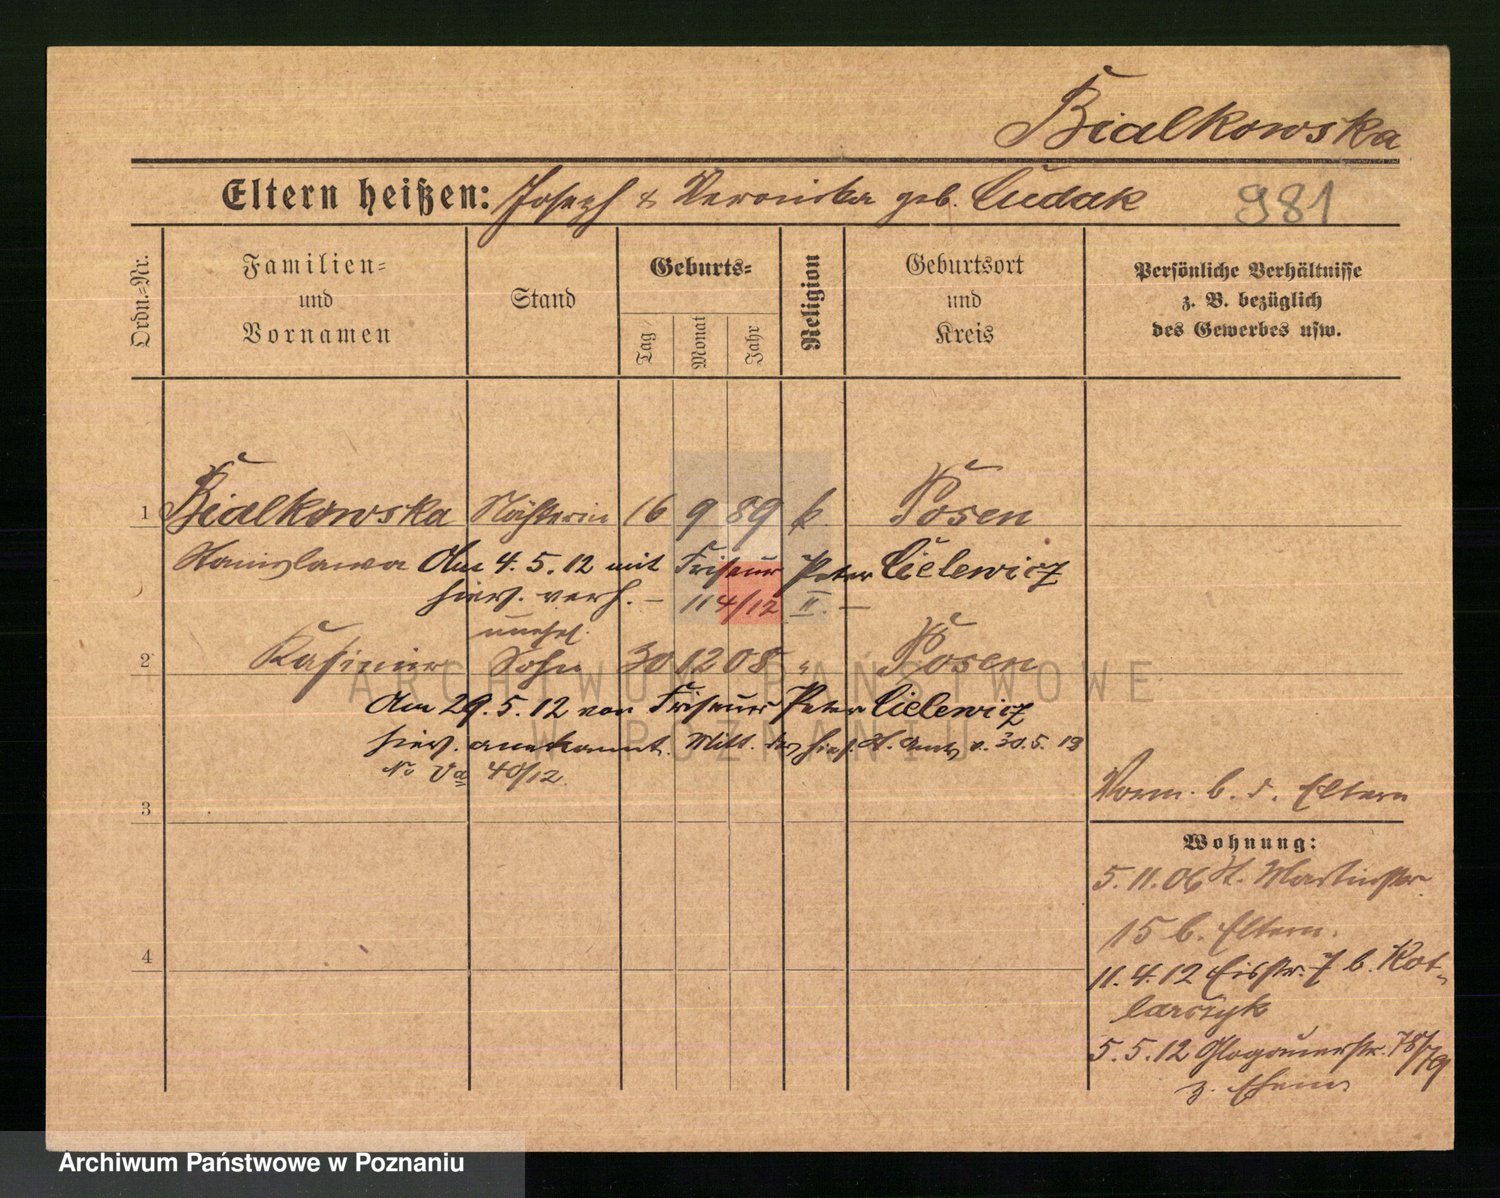 Bialkowska
Eltern heißen: Joseph & Veronika geb. Cudak 981
Ordn.-Nr.
Familien-
und
Vornamen
Stand
Geburts-
Tag
Monat
Jahr
Religion
Geburtsort
und
Kreis
Persönliche Verhältnisse
z. B. bezüglich
des Gewerbes usw.
1 Bialkowska Näherin 16 9 89 k. Posen
Stanislawa Am 4. 5. 12 mit Friseur Peter Cielewicz
hier. verh. – 114/12 II. –
unehel.
2 Kasimir Sohn 30 12 08 " Posen
Am 29. 5. 12 von Friseur Peter Cielewicz
hier. anerkannt. Mitt. des hies. St. Amts v. 30. 5. 12
No Va 40/12.
3
4
Vorm. b. d. Eltern
Wohnung:
5. 11. 06 St. Martinstr.
15 b. Eltern.
11. 4. 12 Eisstr. 7 b. Kot-
larczyk
5. 5. 12 Glogauerstr. 78/79
z. Ehem.
ARCHIWUM PAŃSTWOWE
W POZNANIU
Archiwum Państwowe w Poznaniu